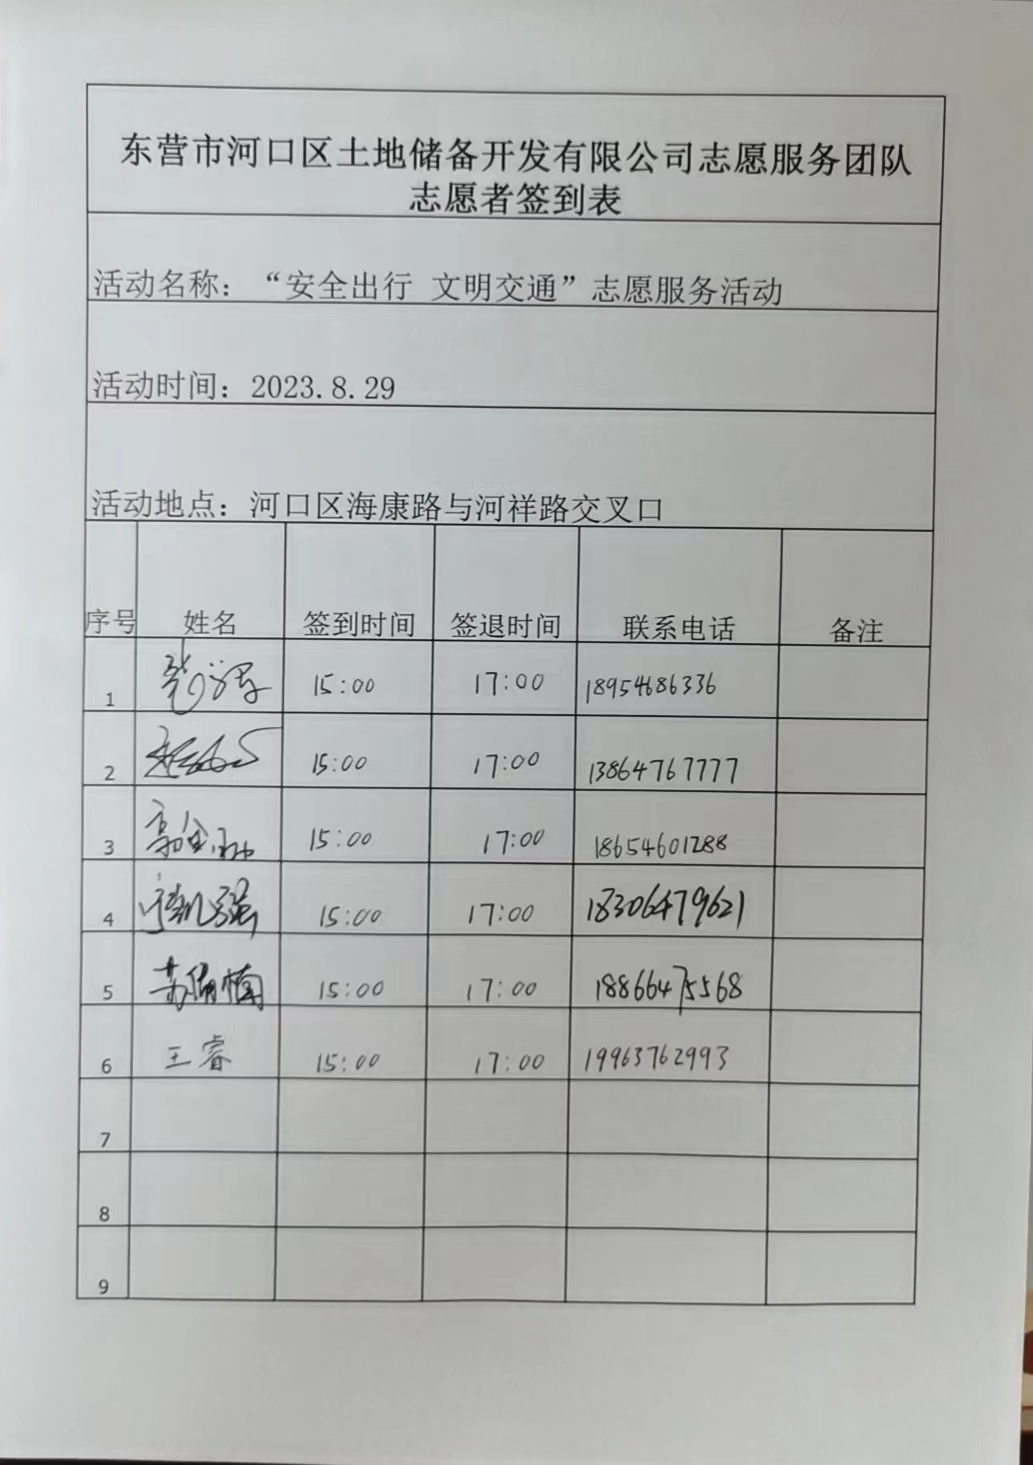 东营市河口区土地储备开发有限公司志愿服务团队
志愿者签到表
活动名称：“安全出行 文明交通”志愿服务活动
活动时间：2023.8.29
活动地点：河口区海康路与河祥路交叉口
序号 姓名 签到时间 签退时间 联系电话 备注
1 15:00 17:00 18954686336
2 15:00 17:00 13864767777
3 15:00 17:00 18654601288
4 15:00 17:00 18306479621
5 15:00 17:00 18866475568
6 王睿 15:00 17:00 19963762993
7
8
9